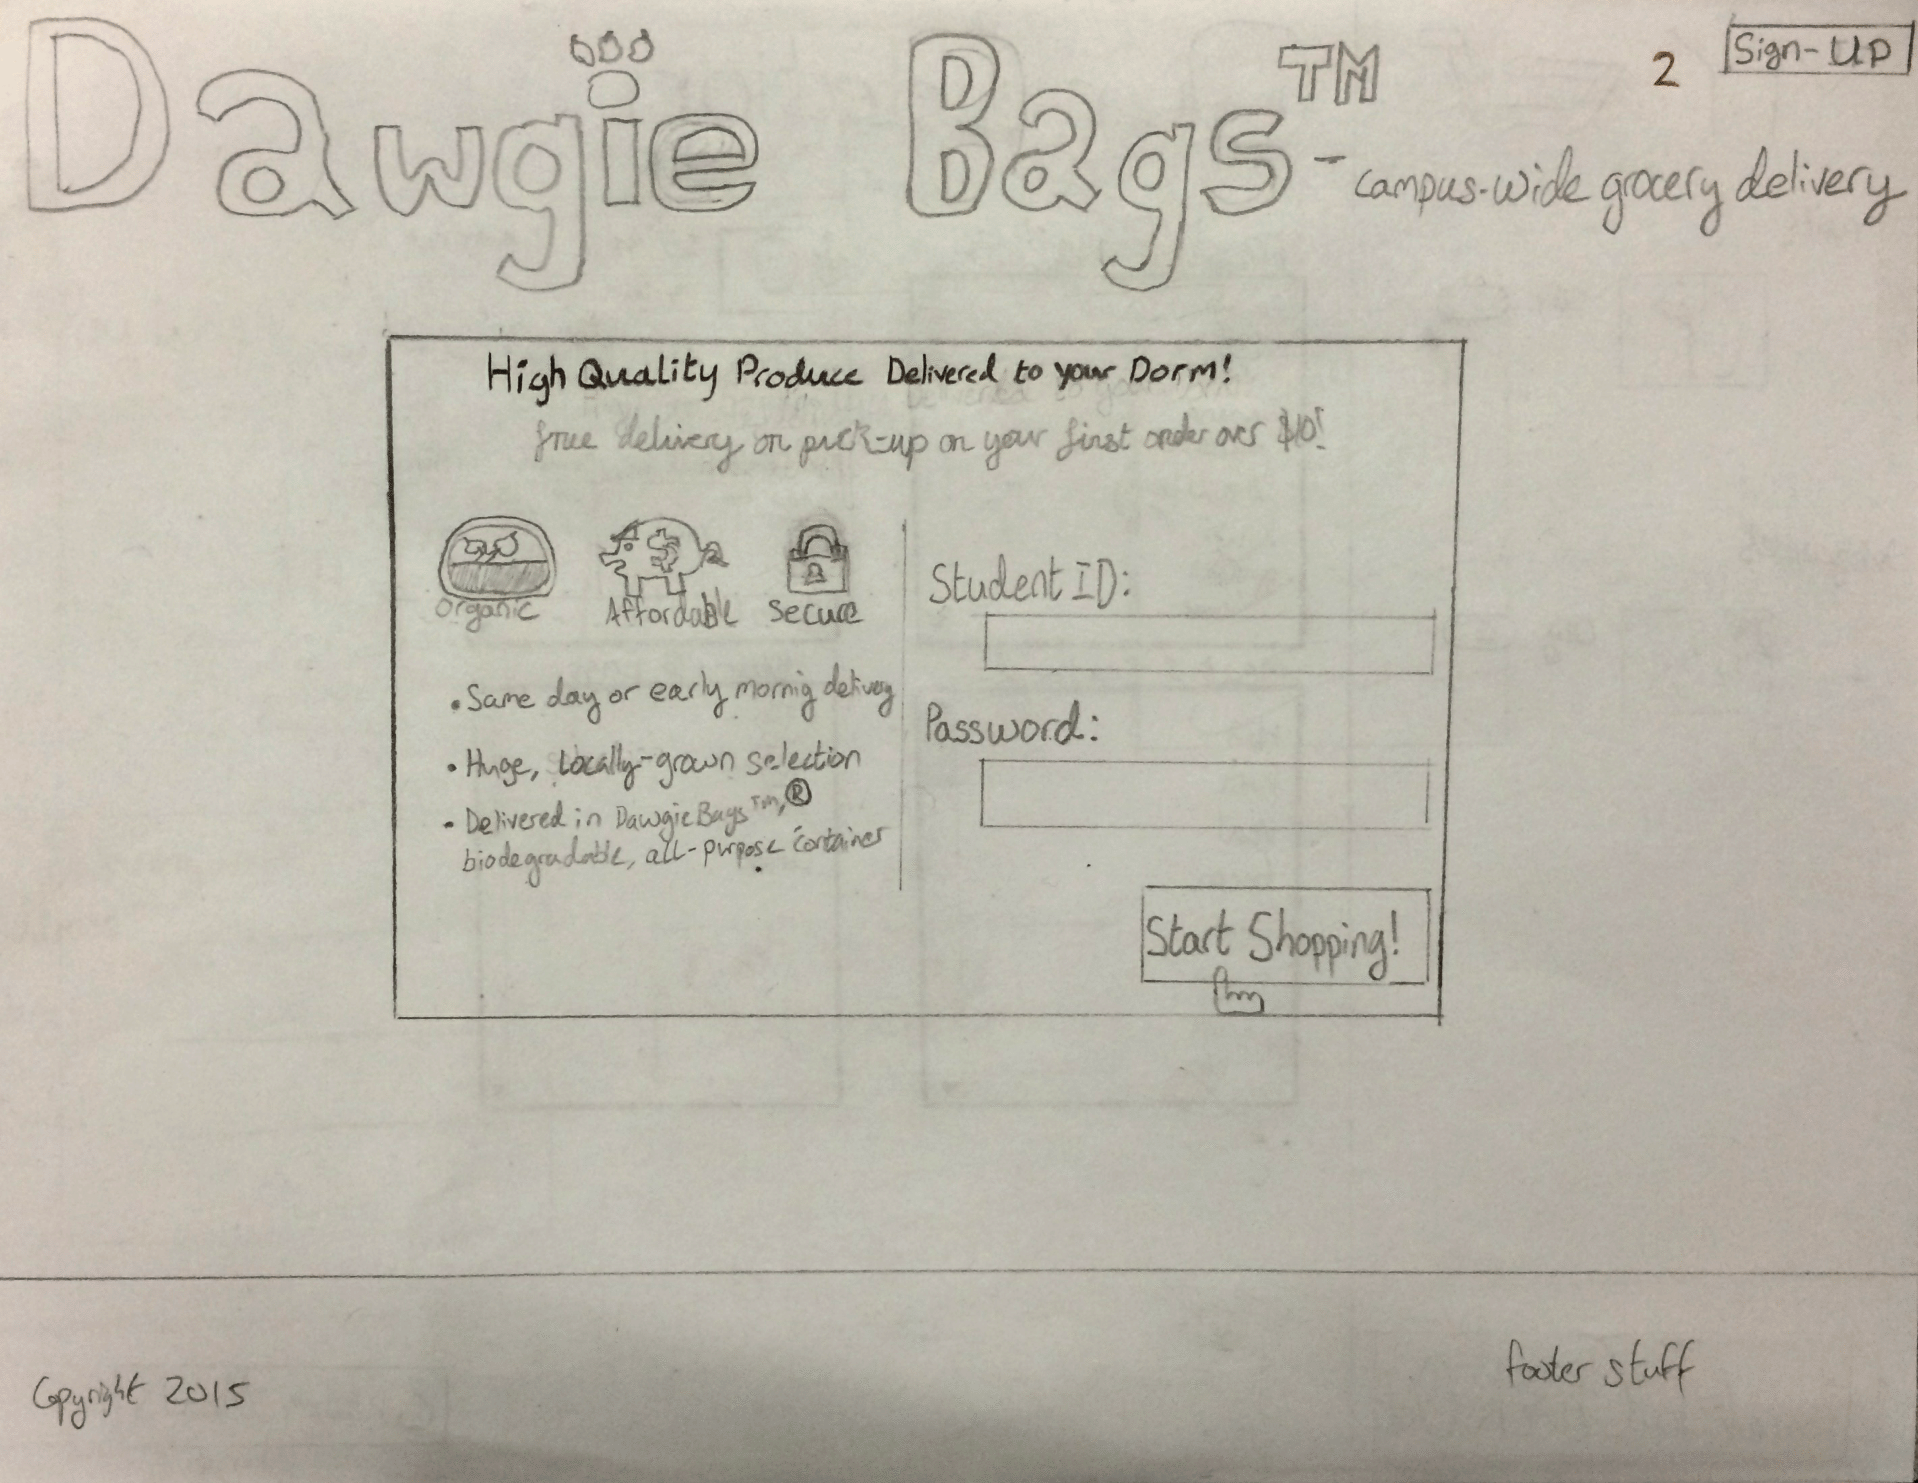 Dawgie Bags™ - campus-wide grocery delivery
2
Sign-UP
High Quality Produce Delivered to your Dorm!
free delivery or pick-up on your first order over $10!
Organic Affordable Secure
• Same day or early mornig delivery
• Huge, Locally-grown selection
• Delivered in DawgieBags™,®
biodegradable, all-purpose container
Student ID:
Password:
Start Shopping!
Copyright 2015
footer stuff